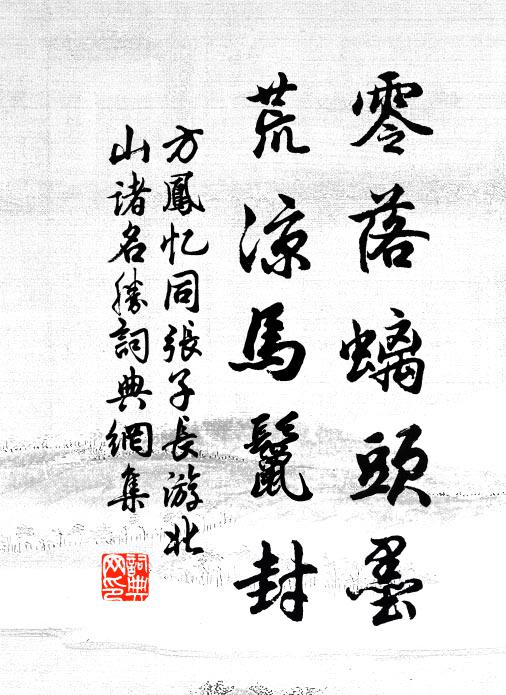 零落螭頭墨
荒凉馬鬣封
方鳳忆同張子長游北
山諸名勝詞典網集
詞典网印